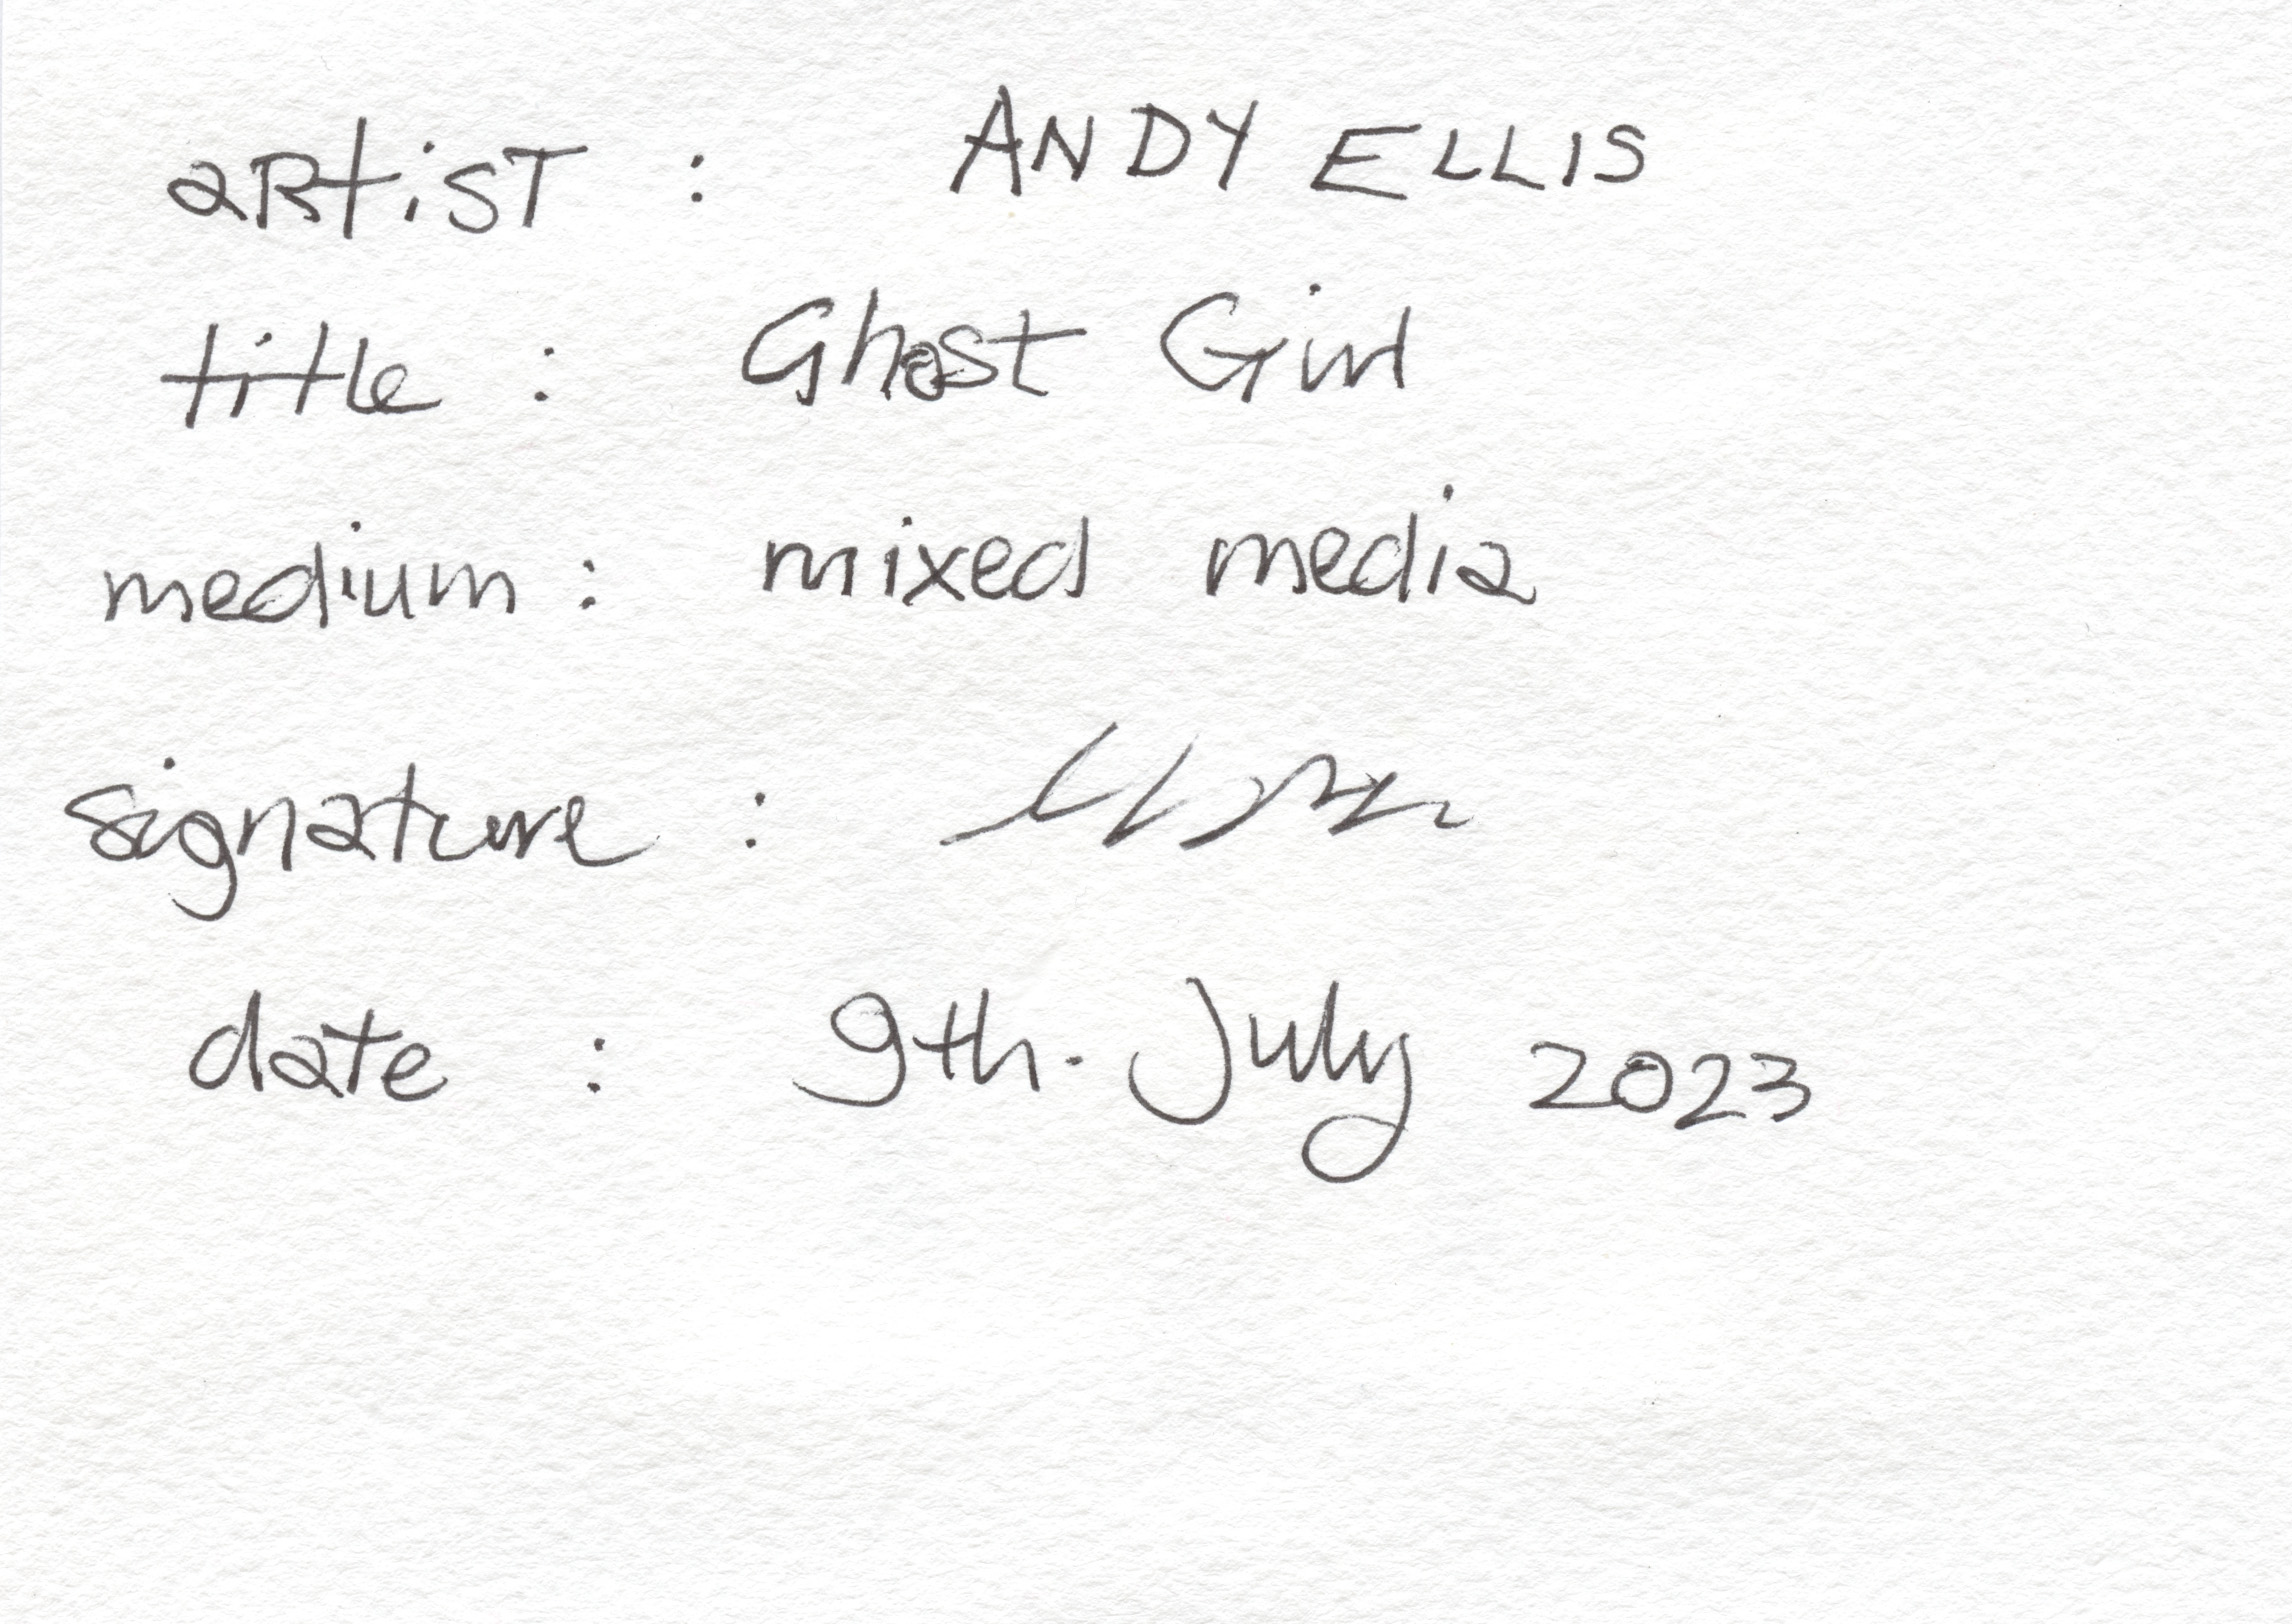 aRtisT : ANDY ELLIS
title : Ghost Girl
medium : mixed media
signature :
date : 9th. July 2023